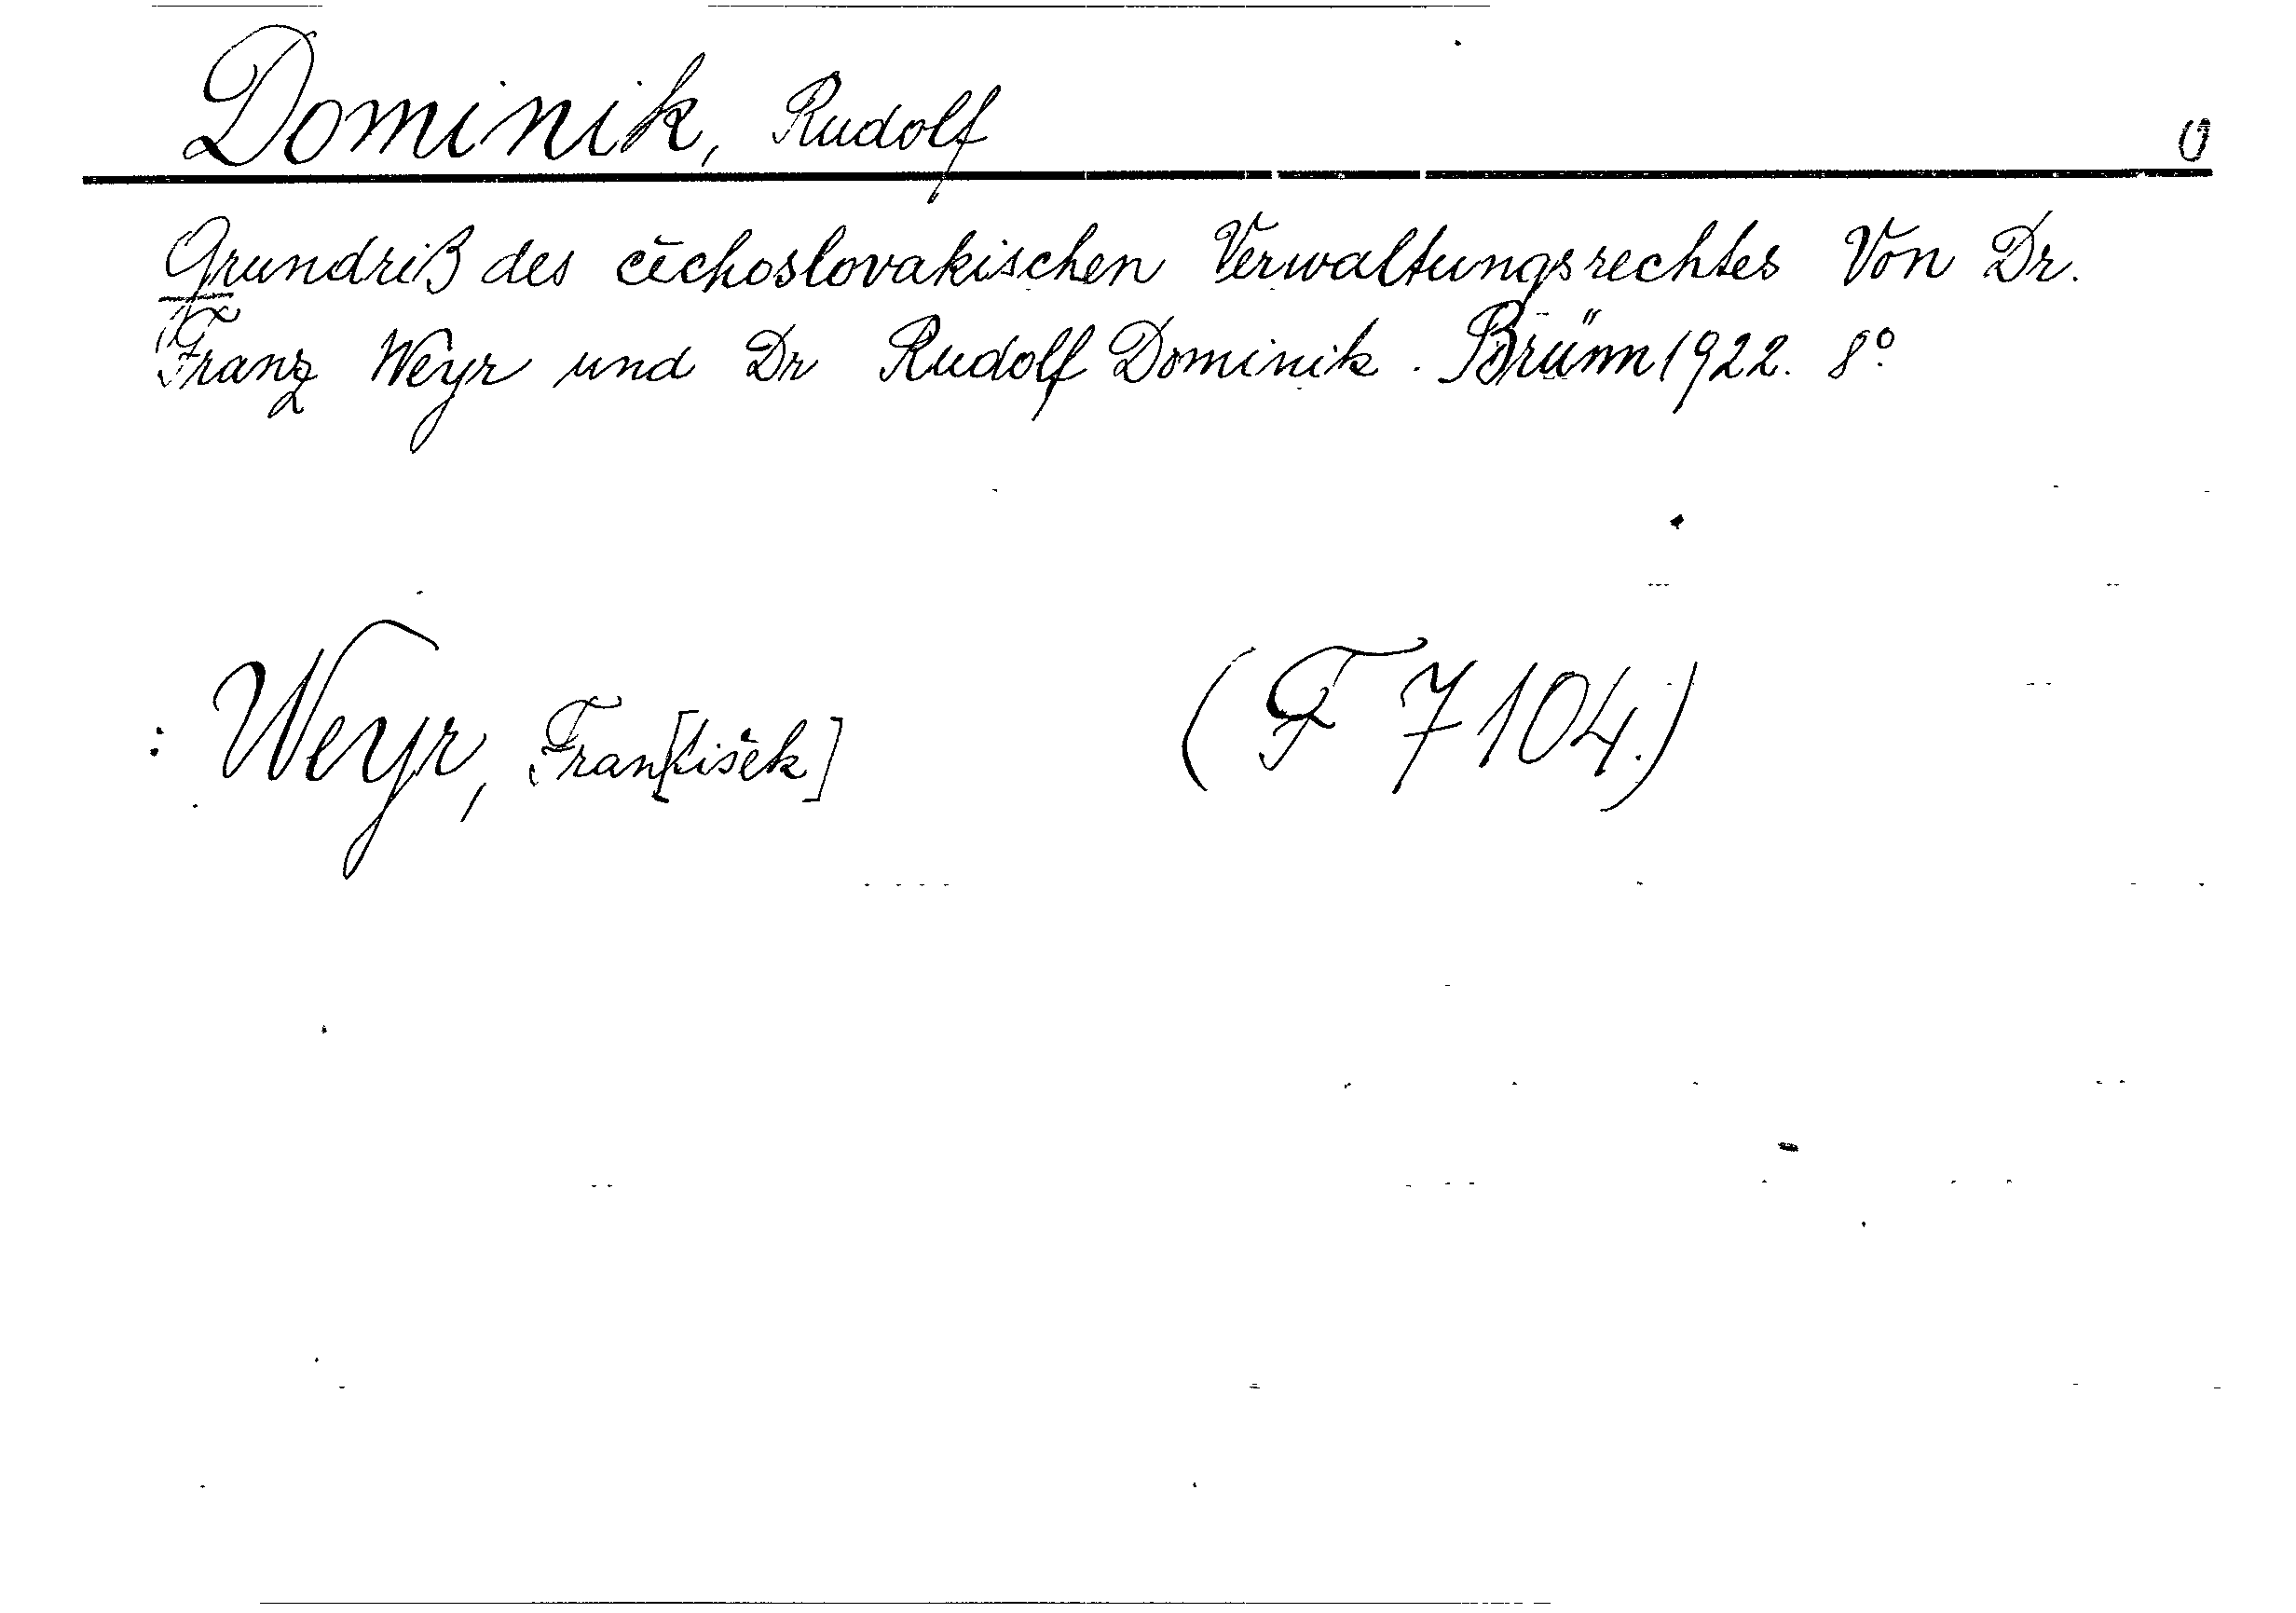 Dominik, Rudolf
Grundriß des čechoslovakischen Verwaltungsrechtes Von Dr.
Franz Weyr und Dr Rudolf Dominik. Brünn 1922. 8°
: Weyr, Fran[tišek] (F 7104.)